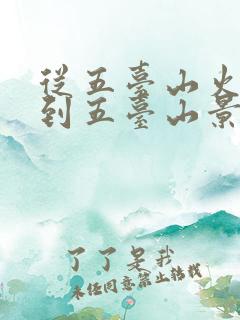 從五臺山火
到五臺山景
了了是我
未经同意禁止搭载